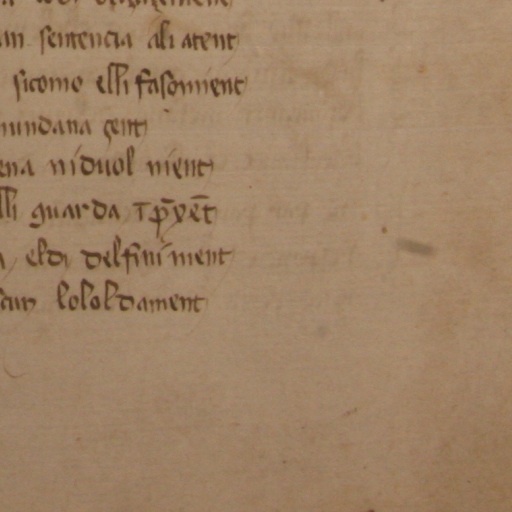 an sentencia ali atent
sicomo elli fasonient
mundana gent
ena niduol nient
lli guarda
a eldi delfiniment
lololdament